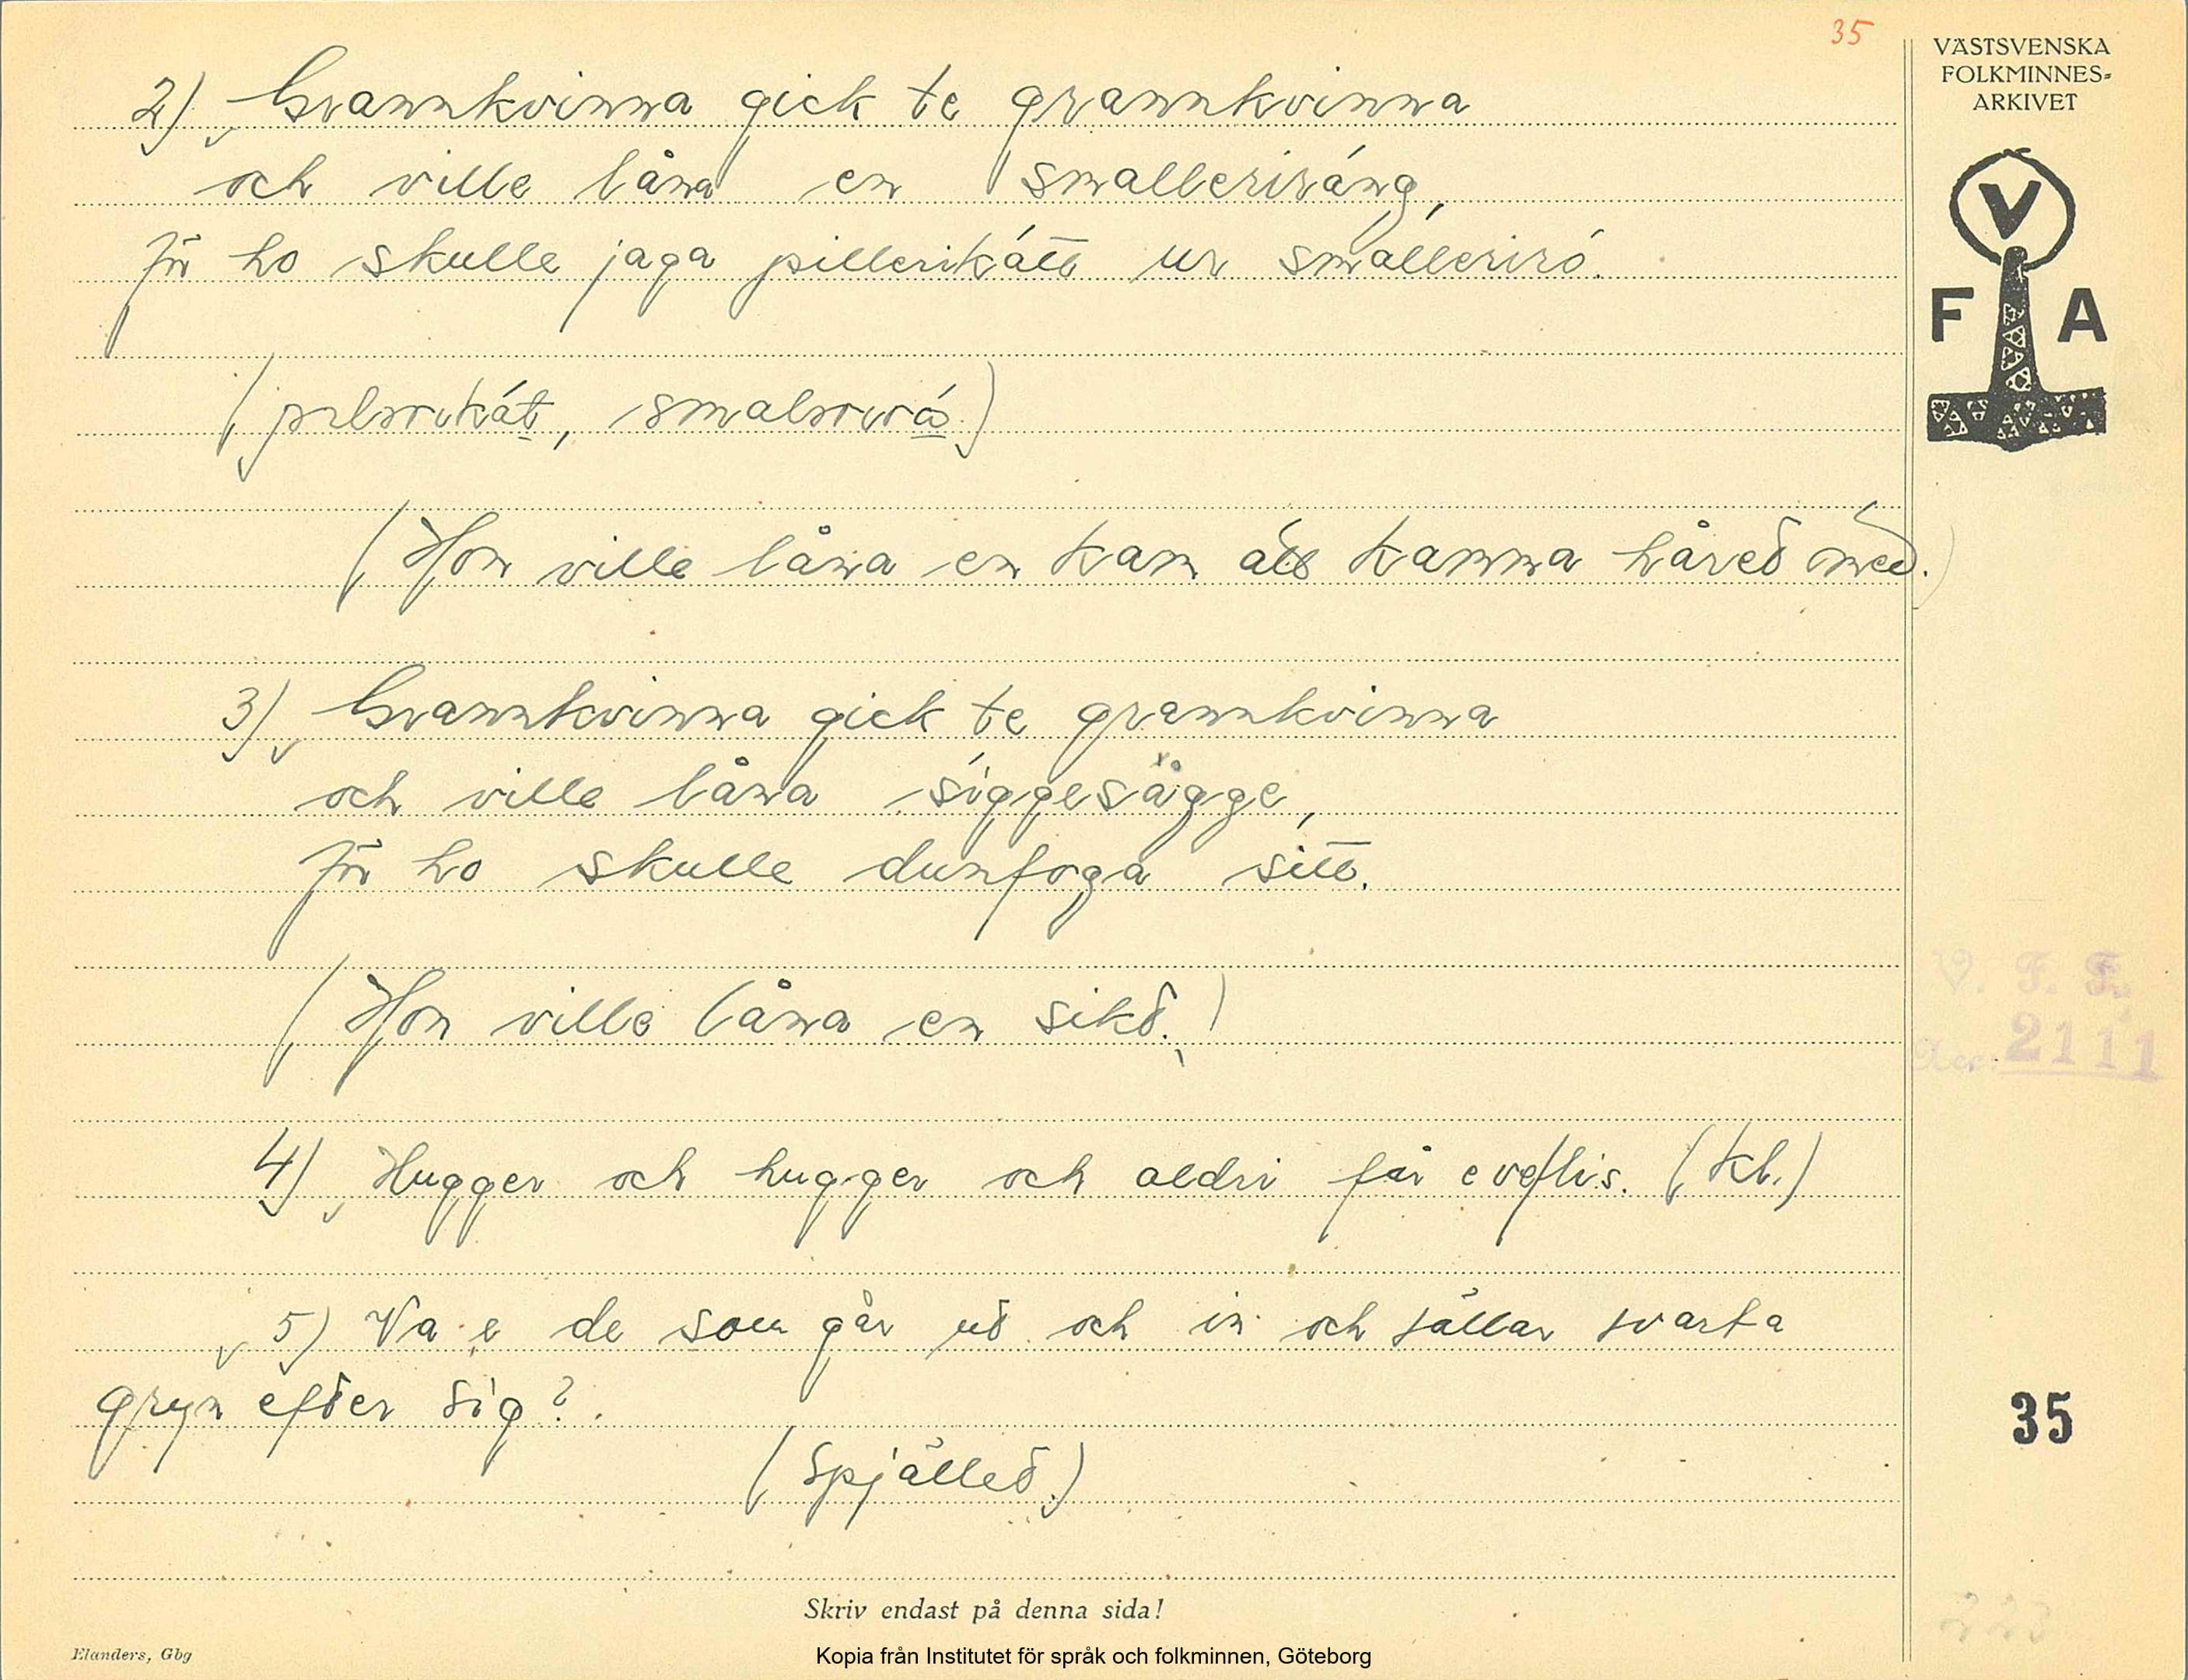 35
VÄSTSVENSKA
FOLKMINNES=
ARKIVET
V
F A
2) Grannkvinna gick te grannkvinna
och ville låna en smalleriráng,
för ho skulle jaga pillerikátt ur smalleriró.
(Hon ville låna en kam att kamma håred med.)
3) Grannkvinna gick te grannkvinna
och ville låna siggesägge,
för ho skulle dunfoga sitt.
(Hon ville låna en sikt.)
V. F. F.
Acc. 2111
4) Hugger och hugger och aldri får e flis. (Kl.)
5) Va e de som går ut och in och fällar svarta
gryn efter sig?
(Spjället.)
35
Skriv endast på denna sida!
Elanders, Gbg
Kopia från Institutet för språk och folkminnen, Göteborg